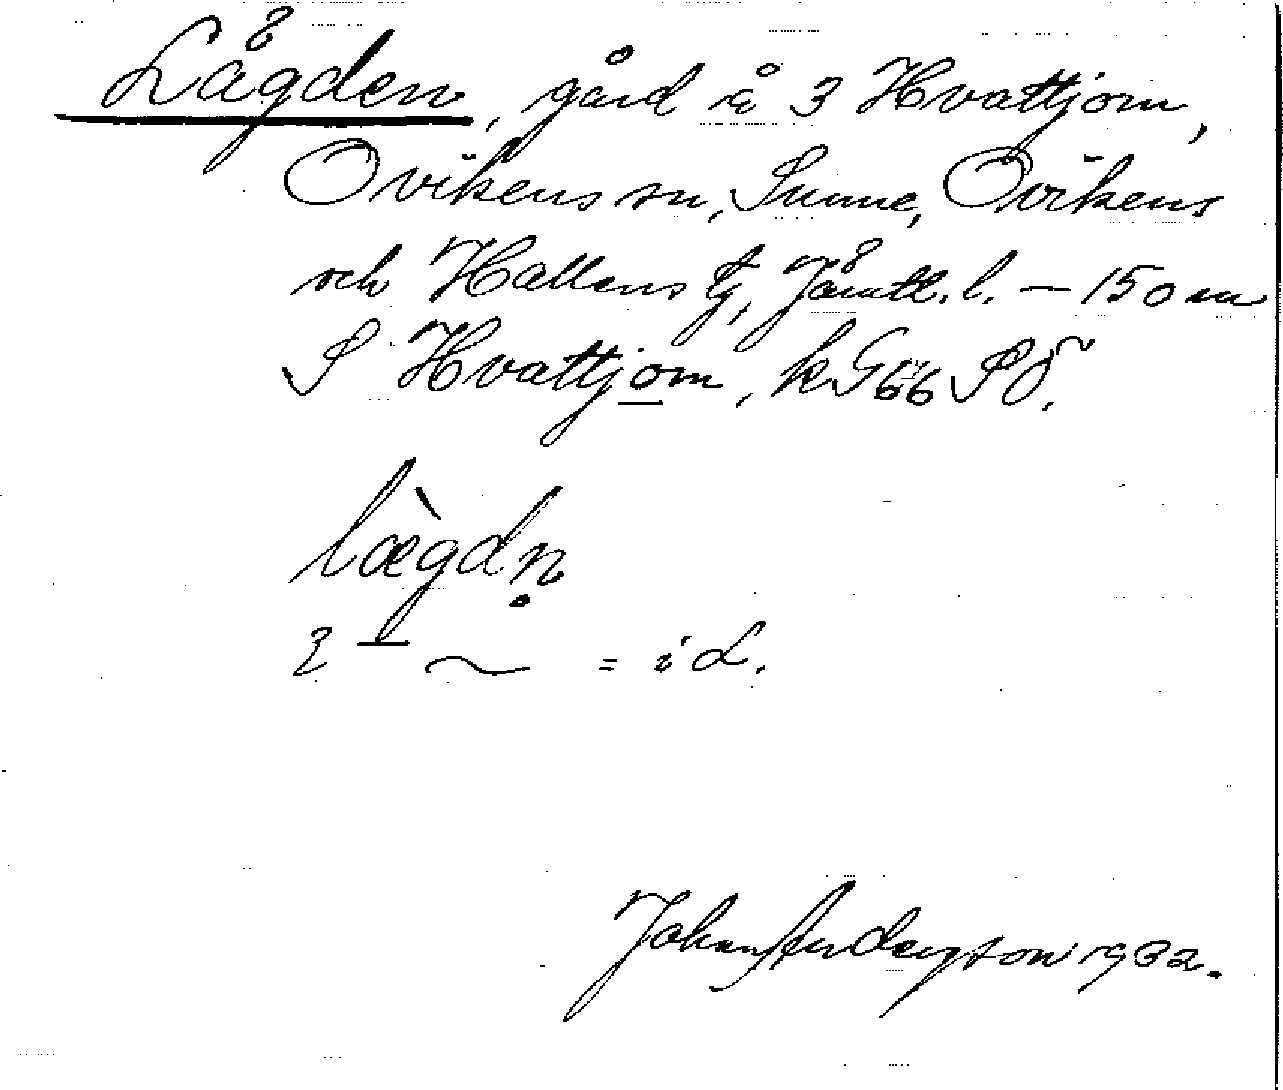 Lägden, gård å 3 Hvattjom,
Ovikens sn, Sunne, Ovikens
och Hallens tg, Jämtl. l. – 150 m
S Hvattjom, k G 66 SÖ.
lægdṇ
= i L.
Johan Anderson 1932.